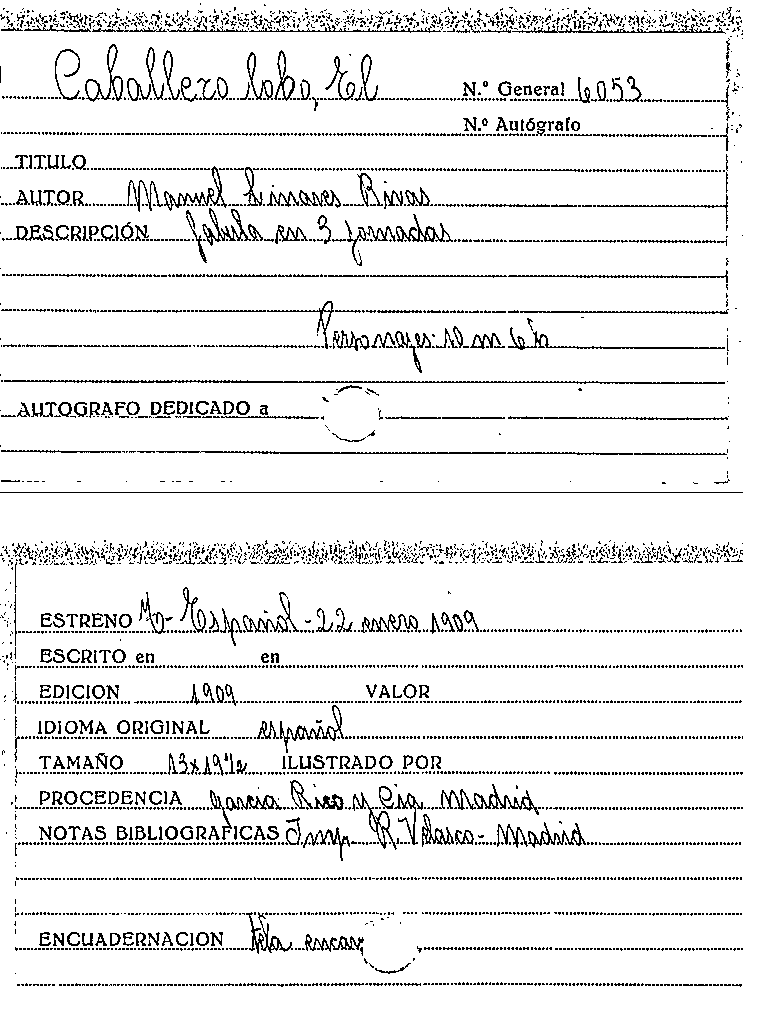 Caballero lobo, El
N.º General 6053
N.º Autógrafo
TITULO
AUTOR Manuel Linares Rivas
DESCRIPCIÓN fabula en 3 jornadas
Personajes: 10 m 6 h
AUTOGRAFO DEDICADO a
ESTRENO Tº- Español - 22 enero 1909
ESCRITO en en
EDICION 1909 VALOR
IDIOMA ORIGINAL español
TAMAÑO 13x19½ ILUSTRADO POR
PROCEDENCIA Garcia Rico y Cia Madrid
NOTAS BIBLIOGRAFICAS Imp. R. Velasco - Madrid
ENCUADERNACION tela encar